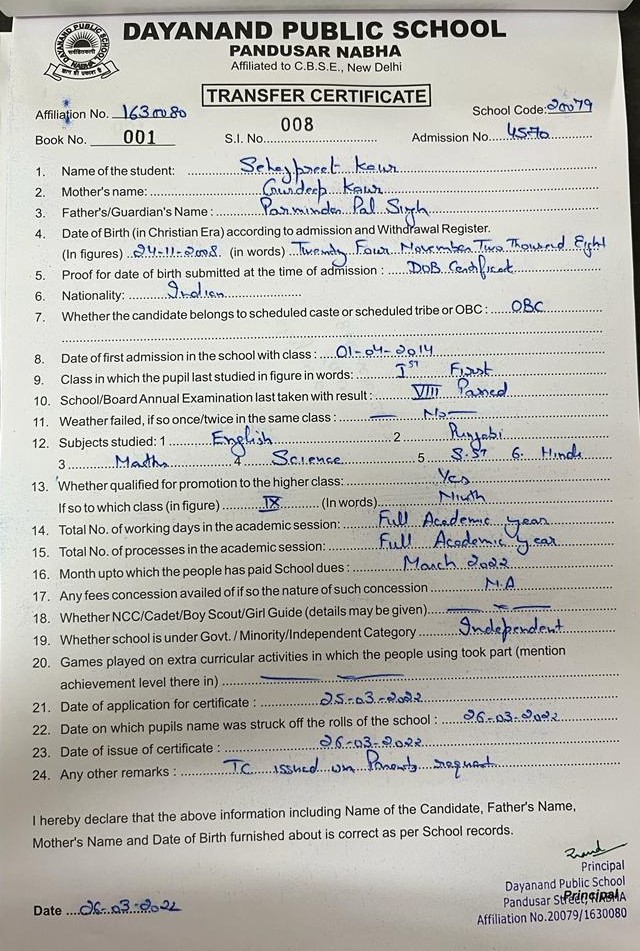 DAYANAND PUBLIC SCHOOL
PANDUSAR NABHA
Affiliated to C.B.S.E., New Delhi
TRANSFER CERTIFICATE
Affiliation No. 1630080 School Code: 20079
Book No. 001 S.I. No. 008 Admission No. 4570
1. Name of the student: Sehajpreet Kaur
2. Mother's name: Gurdeep Kaur
3. Father's/Guardian's Name: Parminder Pal Singh
4. Date of Birth (in Christian Era) according to admission and Withdrawal Register.
(In figures) 24-11-2008. (in words) Twenty Four November Two Thousand Eight
5. Proof for date of birth submitted at the time of admission: DOB Certificat
6. Nationality: Indian
7. Whether the candidate belongs to scheduled caste or scheduled tribe or OBC: OBC
8. Date of first admission in the school with class: 01-04-2014
9. Class in which the pupil last studied in figure in words: Ist First
10. School/Board Annual Examination last taken with result: VIII Passed
11. Weather failed, if so once/twice in the same class: — No —
12. Subjects studied: 1 English 2 Punjabi
3 Maths 4 Science 5 S.ST 6. Hindi
13. Whether qualified for promotion to the higher class: Yes
If so to which class (in figure) IX (In words) Ninth
14. Total No. of working days in the academic session: Full Academic year
15. Total No. of processes in the academic session: Full Academic year
16. Month upto which the people has paid School dues: March 2022
17. Any fees concession availed of if so the nature of such concession N.A
18. Whether NCC/Cadet/Boy Scout/Girl Guide (details may be given)
19. Whether school is under Govt. / Minority/Independent Category Independent
20. Games played on extra curricular activities in which the people using took part (mention
achievement level there in)
21. Date of application for certificate: 25-03-2022
22. Date on which pupils name was struck off the rolls of the school: 26-03-2022
23. Date of issue of certificate: 26-03-2022
24. Any other remarks: TC issued on Parents request
I hereby declare that the above information including Name of the Candidate, Father's Name,
Mother's Name and Date of Birth furnished about is correct as per School records.
Principal
Dayanand Public School
Pandusar Street, NABHA
Principal
Affiliation No.20079/1630080
Date 26-03-2022